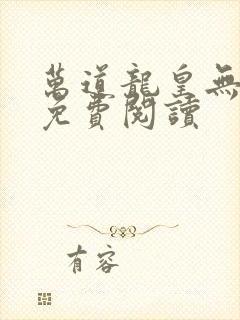 萬道龍皇無
免費閱讀
有容